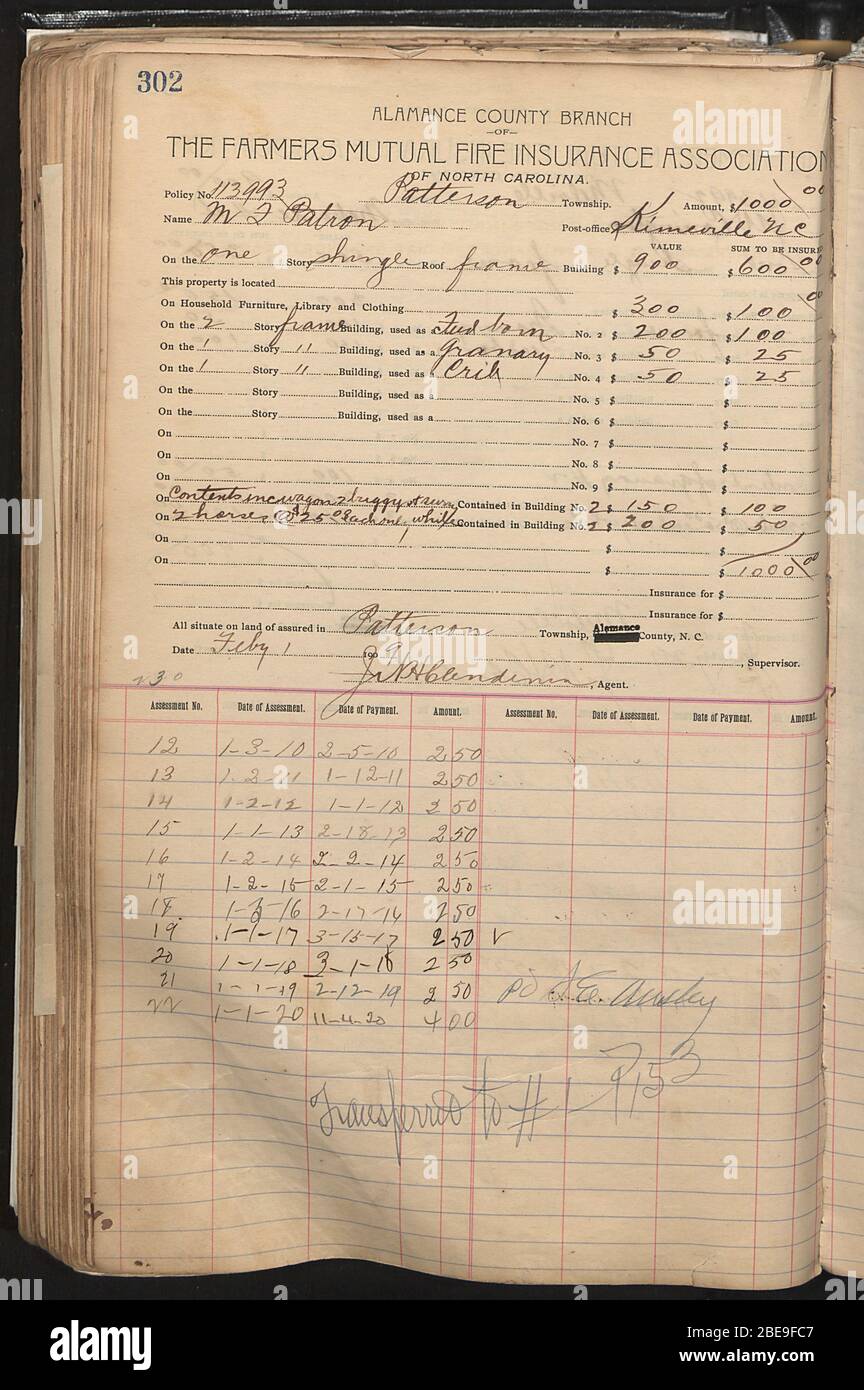 302
ALAMANCE COUNTY BRANCH
—OF—
THE FARMERS MUTUAL FIRE INSURANCE ASSOCIATION
OF NORTH CAROLINA.
Policy No. 113993 Patterson Township. Amount, $1000 00
Name M F Patron Post-office, Kimeville N C
VALUE SUM TO BE INSUR
On the one Story shingle Roof frame Building $ 900 $600 00
This property is located
On Household Furniture, Library and Clothing $ 300 $100 00
On the 2 Story frame Building, used as a Feed barn No. 2 $ 200 $100
On the 1 Story " Building, used as a Granary No. 3 $ 50 $ 25
On the 1 Story " Building, used as a Crib No. 4 $ 50 $ 25
On the Story Building, used as a No. 5 $ $
On the Story Building, used as a No. 6 $ $
On No. 7 $ $
On No. 8 $ $
On No. 9 $ $
On Contents inc wagon & buggy Contained in Building No. 2 $ 150 $ 100
On 2 horses @ $25 00 Each one, while Contained in Building No. 2 $ 200 $ 50
On $ $
On $ $ 1000 00
Insurance for $
Insurance for $
All situate on land of assured in Patterson Township, Alamance County, N. C.
Date Feby 1 190 9 , Supervisor.
J. N. H. Clendenin, Agent.
230
Assessment No. Date of Assessment. Date of Payment. Amount. Assessment No. Date of Assessment. Date of Payment. Amount.
12 1-3-10 2-5-10 2 50
13 1-2-11 1-12-11 2 50
14 1-2-12 1-1-12 2 50
15 1-1-13 2-18-13 2 50
16 1-2-14 2-2-14 2 50
17 1-2-15 2-1-15 2 50
18 1-3-16 2-17-16 2 50
19 1-1-17 3-15-17 2 50 v
20 1-1-18 3-1-18 2 50
21 1-1-19 2-12-19 2 50 pd
22 1-1-20 11-4-20 4 00
Transferred to # 1 7153
alamy
Image ID: 2BE9FC7
www.alamy.com